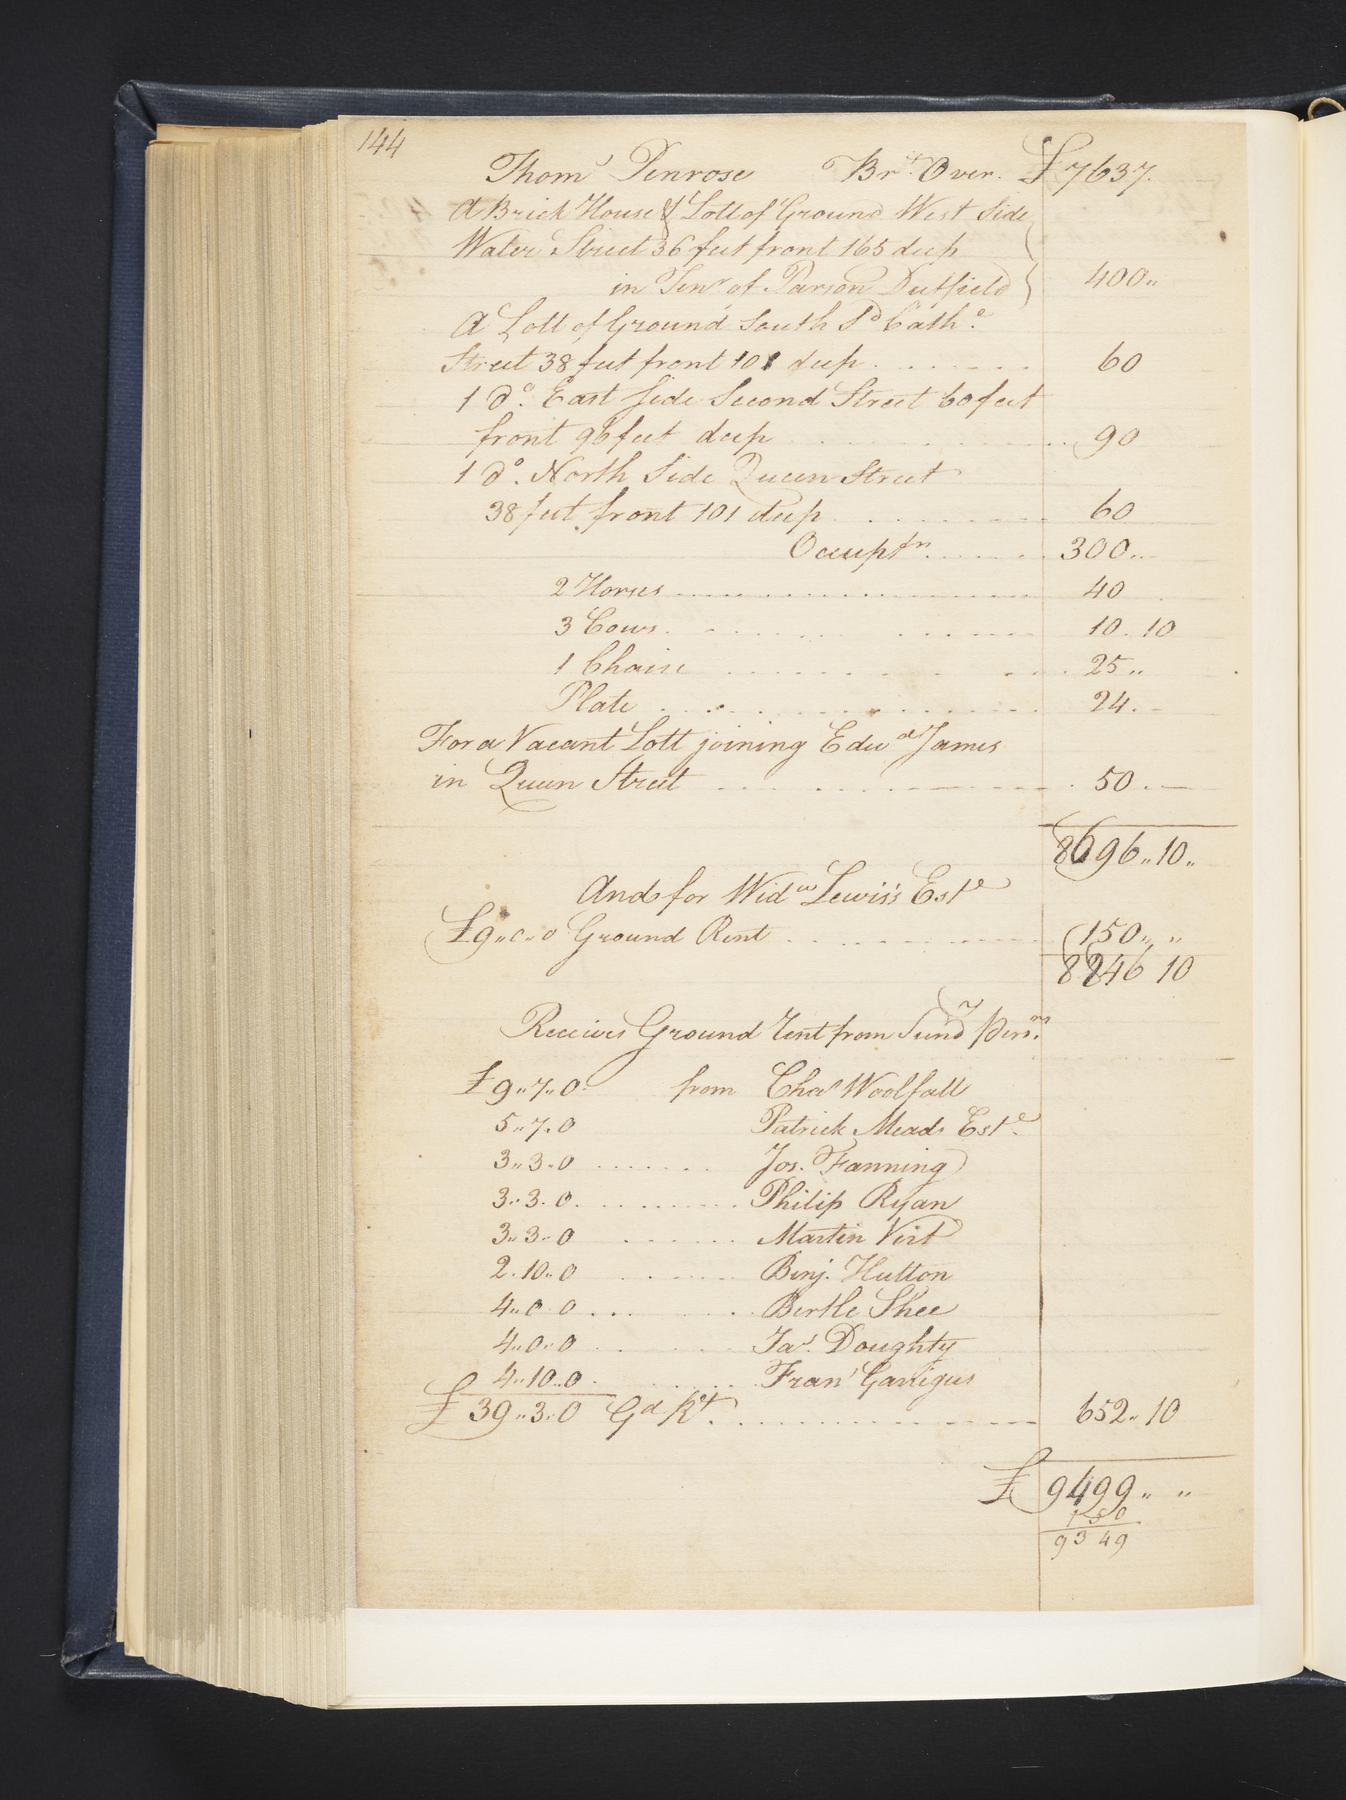 144
Thoms Penrose Brt. Over. £ 7637.
A Brick House & Lott of Ground West Side
Water Street 36 feet front 165 deep
in Tenr of Parson Duffield 400"
A Lott of Ground South Sd Cathe.
Street 38 feet front 101 deep . . . . . . . 60
1 do. East Side Second Street 60 feet
front 96 feet deep . . . . . . . 90
1 do. North Side Queen Street
38 feet front 101 deep . . . . . . . 60
Occuptn . . . . . . . 300..
2 Horses . . . . . . . 40
3 Cows . . . . . . . 10. 10
1 Chaise . . . . . . . 25 "
Plate . . . . . . . 24. -
For a Vacant Lott joining Edwd James
in Queen Street . . . . . . . 50. —
8696 " 10 "
And for Widw Lewis's Este
£ 9 " 0 " 0 Ground Rent . . . . . . . 150 " "
8846 10
Receives Ground Rent from Sundy Persns.
£ 9 " 7 " 0 from Chas Woolfall
5 " 7 . 0 Patrick Meads Este.
3 " 3 . 0 . . . . . . . Jos. Fanning
3 " 3 . 0 . . . . . . . Philip Ryan
3 " 3 " 0 . . . . . . . Martin Virt
2 . 10 " 0 . . . . . . . Benj. Hutton
4 " 0 0 . . . . Bertle Shee
4 " 0 " 0 . . . . . . . Jas. Doughty
4 " 10 " 0 . . . . . . . Frans Garrigus
£ 39 " 3 " 0 Gd Rt . . . . . . . 652 " 10
£ 9499 " "
150
9349